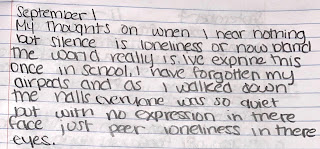 September 1
My thoughts on when I hear nothing
but silence is loneliness or how bland
the world really is. ive expne this
once in school, I have forgotten my
airpods and as I walked down
the halls everyone was so quiet
but with no expression in there
face just peer loneliness in there
eyes.